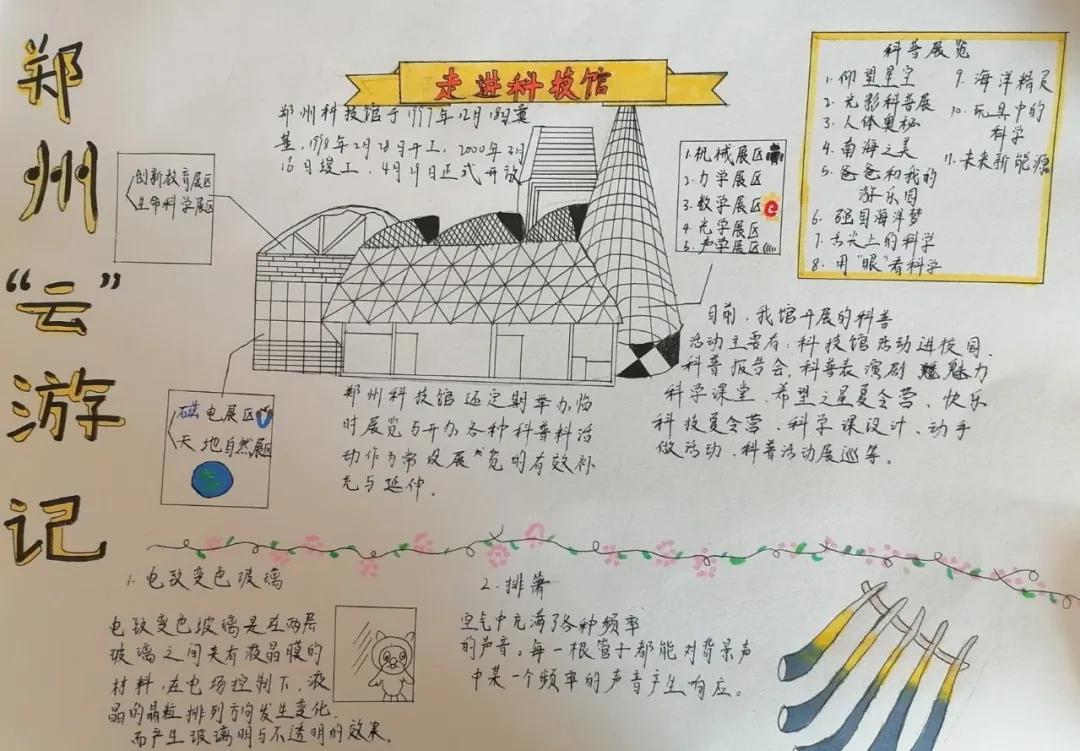 郑州“云”游记
走进科技馆
郑州科技馆于1997年12月18日奠
基,1998年2月28日开工,2000年3月
16日竣工,4月21日正式开放
创新教育展区
生命科学展区
1.机械展区
2.力学展区
3.数学展区
4.光学展区
5.声学展区
磁电展区
天地自然展区
科普展览
1.仰望星空
2.光影科普展
3.人体奥秘
4.南海之美
5.爸爸和我的
游乐园
6.强国海洋梦
7.舌尖上的科学
8.用“眼”看科学
9.海洋精灵
10.玩具中的
科学
11.未来新能源
郑州科技馆还定期举办临
时展览与开办各种科普科活
动作为常设展览的有效补
充与延伸。
目前,我馆开展的科普
活动主要有:科技馆活动进校园、
科普报告会、科普表演剧、魅力
科学课堂、希望之星夏令营、快乐
科技夏令营、科学课设计、动手
做活动、科普活动展巡等。
1.电致变色玻璃
电致变色玻璃是在两层
玻璃之间夹有液晶膜的
材料,在电场控制下,液
晶的晶粒排列方向发生变化,
而产生玻璃明与不透明的效果。
2.排箫
空气中充满了各种频率
的声音。每一根管子都能对背景声
中某一个频率的声音产生响应。